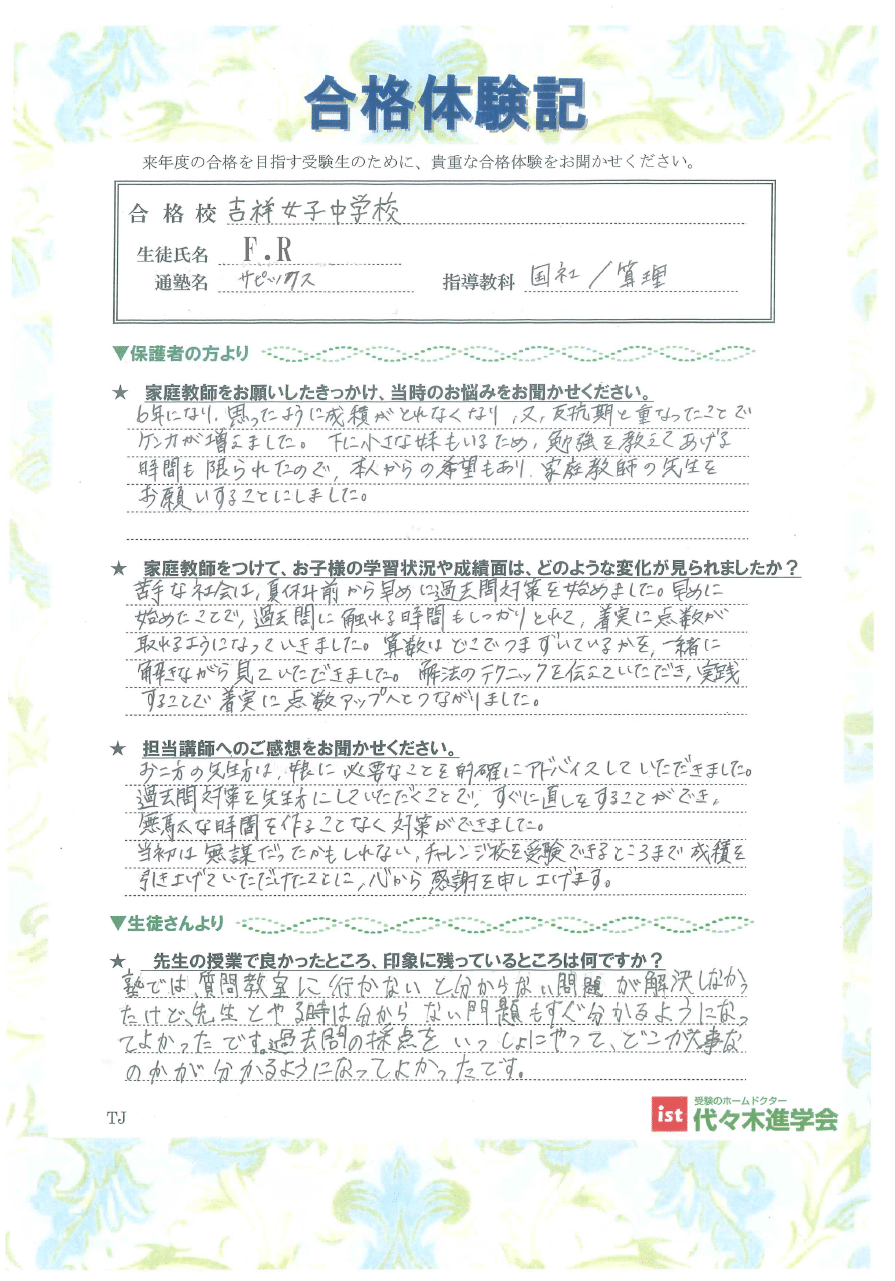 合格体験記
来年度の合格を目指す受験生のために、貴重な合格体験をお聞かせください。
合格校 吉祥女子中学校
生徒氏名 F.R
通塾名 サピックス 指導教科 国社/算理
▼保護者の方より
★ 家庭教師をお願いしたきっかけ、当時のお悩みをお聞かせください。
6年になり、思ったように成積がとれなくなり、又、反抗期と重なったことで
ケンカが増えました。下に小さな妹もいるため、勉強を教えてあげる
時間も限られたので、本人からの希望もあり、家庭教師の先生を
お願いすることにしました。
★ 家庭教師をつけて、お子様の学習状況や成績面は、どのような変化が見られましたか？
苦手な社会は、夏休み前から早めに過去問対策を始めました。早めに
始めたことで、過去問に触れる時間もしっかりとれて、着実に点数が
取れるようになっていきました。算数はどこでつまずいているかを、一緒に
解きながら見ていただきました。解法のテクニックを伝えていただき、実践
することで着実に点数アップへとつながりました。
★ 担当講師へのご感想をお聞かせください。
お二方の先生方は、娘に必要なことを的確にアドバイスしていただきました。
過去問対策を先生方にしていただくことで、すぐに直しをすることができ、
無駄な時間を作ることなく対策ができました。
当初は無謀だったかもしれない、チャレンジ校を受験できるところまで成積を
引き上げていただけたことに、心から感謝を申し上げます。
▼生徒さんより
★ 先生の授業で良かったところ、印象に残っているところは何ですか？
塾では質問教室に行かないと分からない問題が解決しなかっ
たけど、先生とやる時は分からない問題もすぐ分かるようになっ
てよかったです。過去問の採点をいっしょにやって、どこが大事な
のかが分かるようになってよかったです。
TJ
ist
受験のホームドクター
代々木進学会